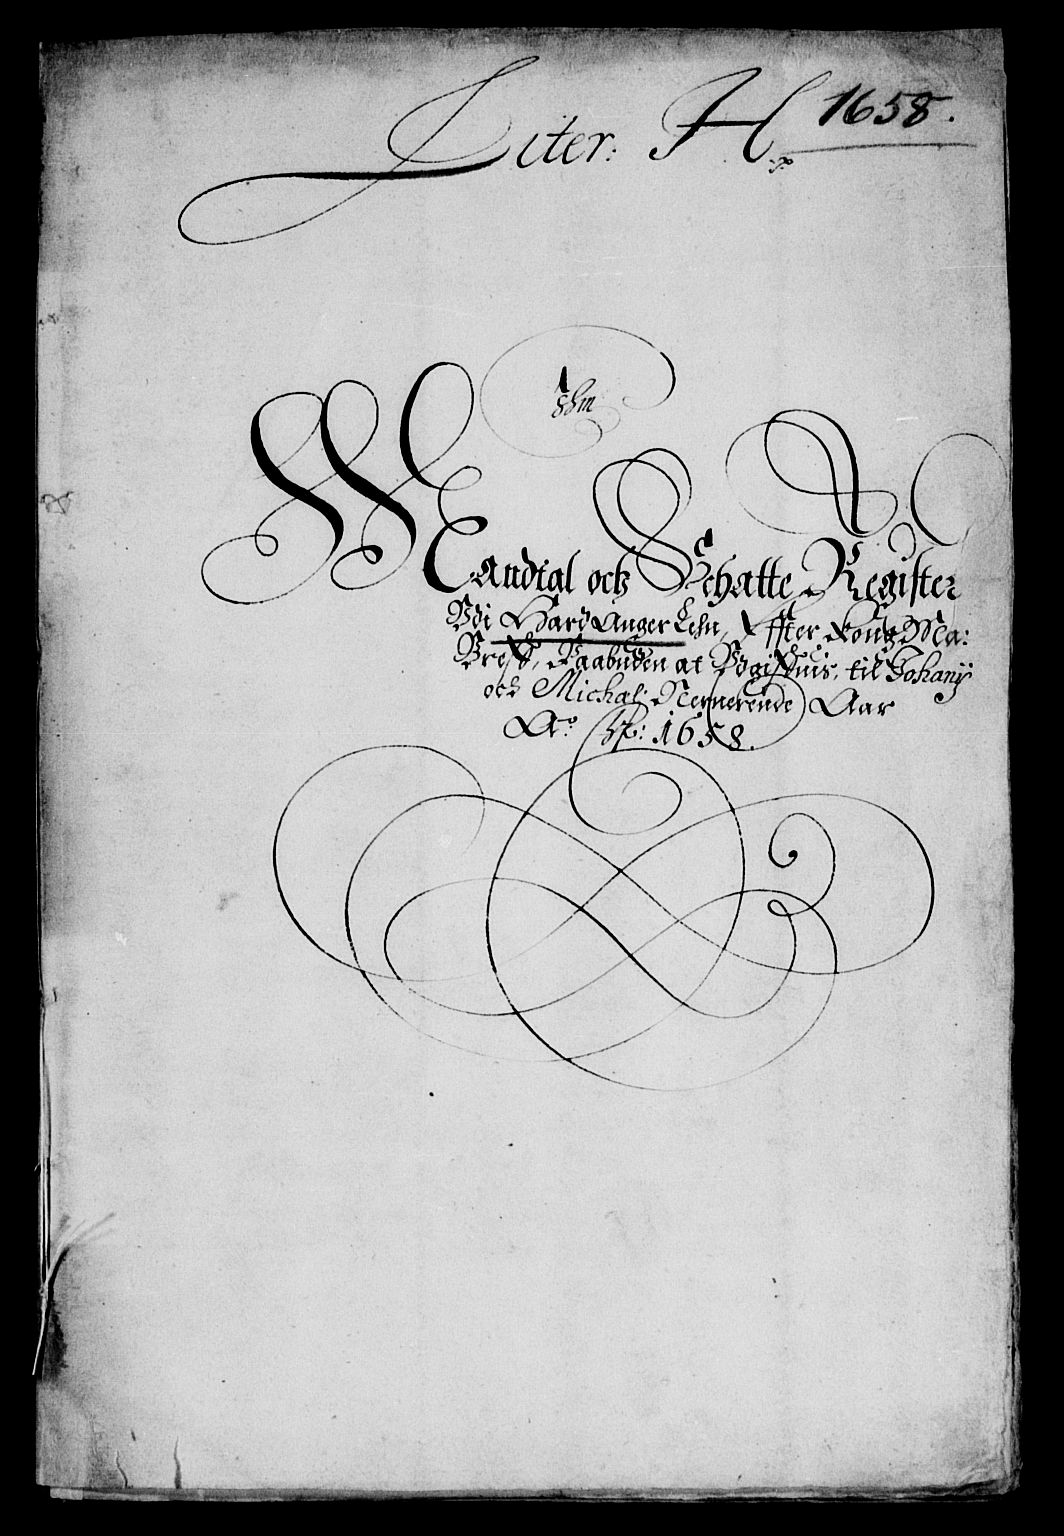 Liter: H 1658.
Mandtal och Schatte Register
Vdi Hard Anger Lehn, Effter Kong: Ma:
Breff, Paabuden at Vdgiffuis, til Johanÿ
och Michal: Nernerende Aar
Aº 1658.